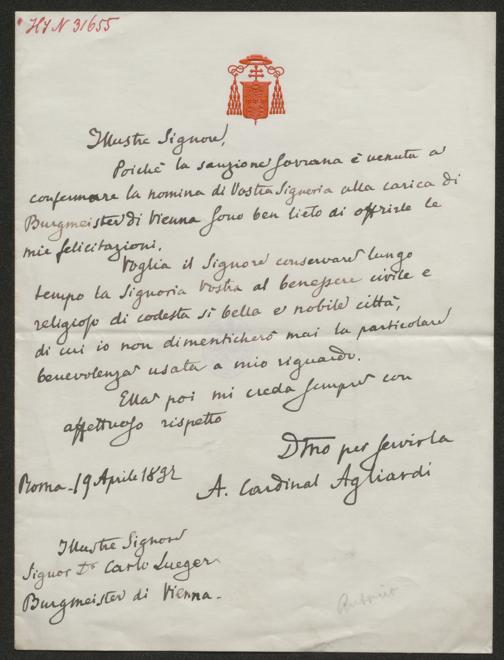 HIN 31655
Illustre Signore,
Poichè la sanzione Sovrana è venuta a
confermare la nomina di Vostra Signoria alla carica di
Burgmeister di Vienna sono ben lieto di offrirle le
mie felicitazioni.
Voglia il Signore conservare lungo
tempo la Signoria Vostra al benessere civile e
religioso di codesta sì bella e nobile città,
di cui io non dimenticherò mai la particolare
benevolenza usata a mio riguardo.
Ella poi mi creda sempre con
affettuoso rispetto
Dmo per servirla
A. Cardinal Agliardi
Roma - 19 Aprile
Illustre Signore
Signor Dr Carlo Lueger
Burgmeister di Vienna.